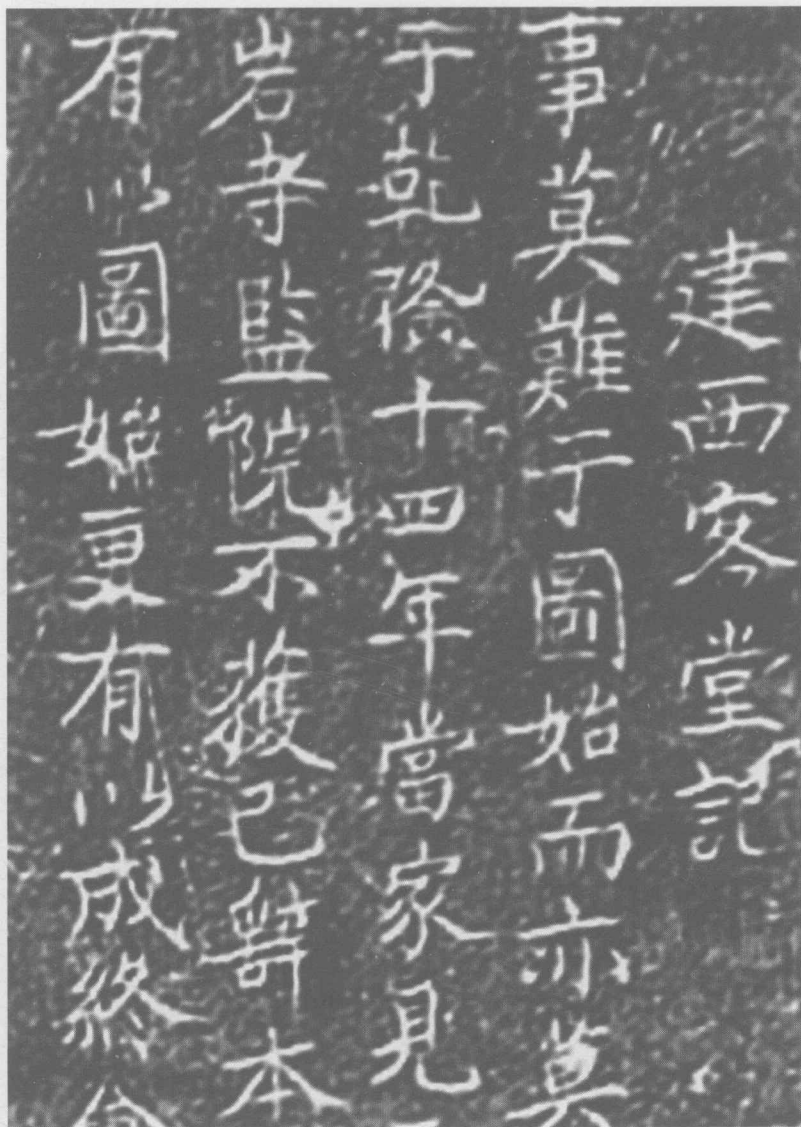 建西客堂記
事莫難于圖始而亦莫
于乾隆十四年當家見
岩寺監院不獲已辭本
有以圖始更有以成終